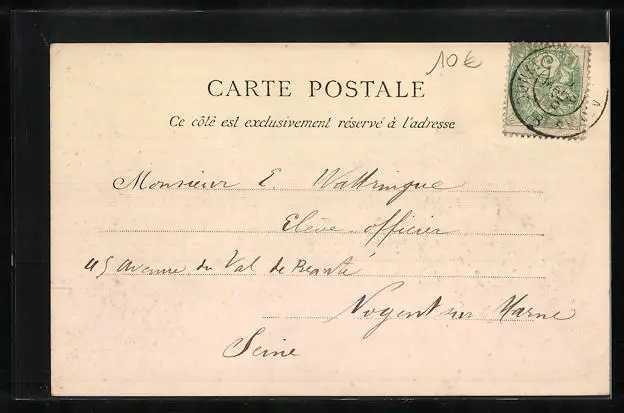 10€
CARTE POSTALE
Ce côté est exclusivement réservé à l'adresse
Monsieur E. Wattringue
Elève-officier
45 Avenue du Val de Beauté
Nogent sur Marne
Seine